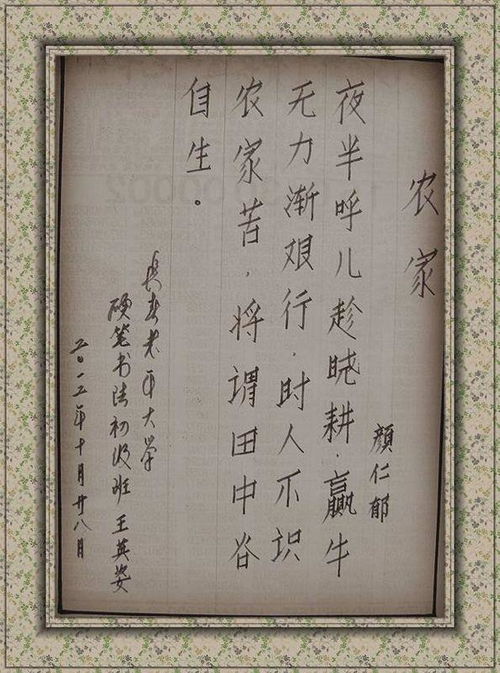 农家
顏仁郁
夜半呼儿趁晓耕,赢牛
无力渐艰行,时人不识
农家苦,将谓田中谷
自生。
长春老年大学
硬笔书法初级班 王英姿
年十月廿八日